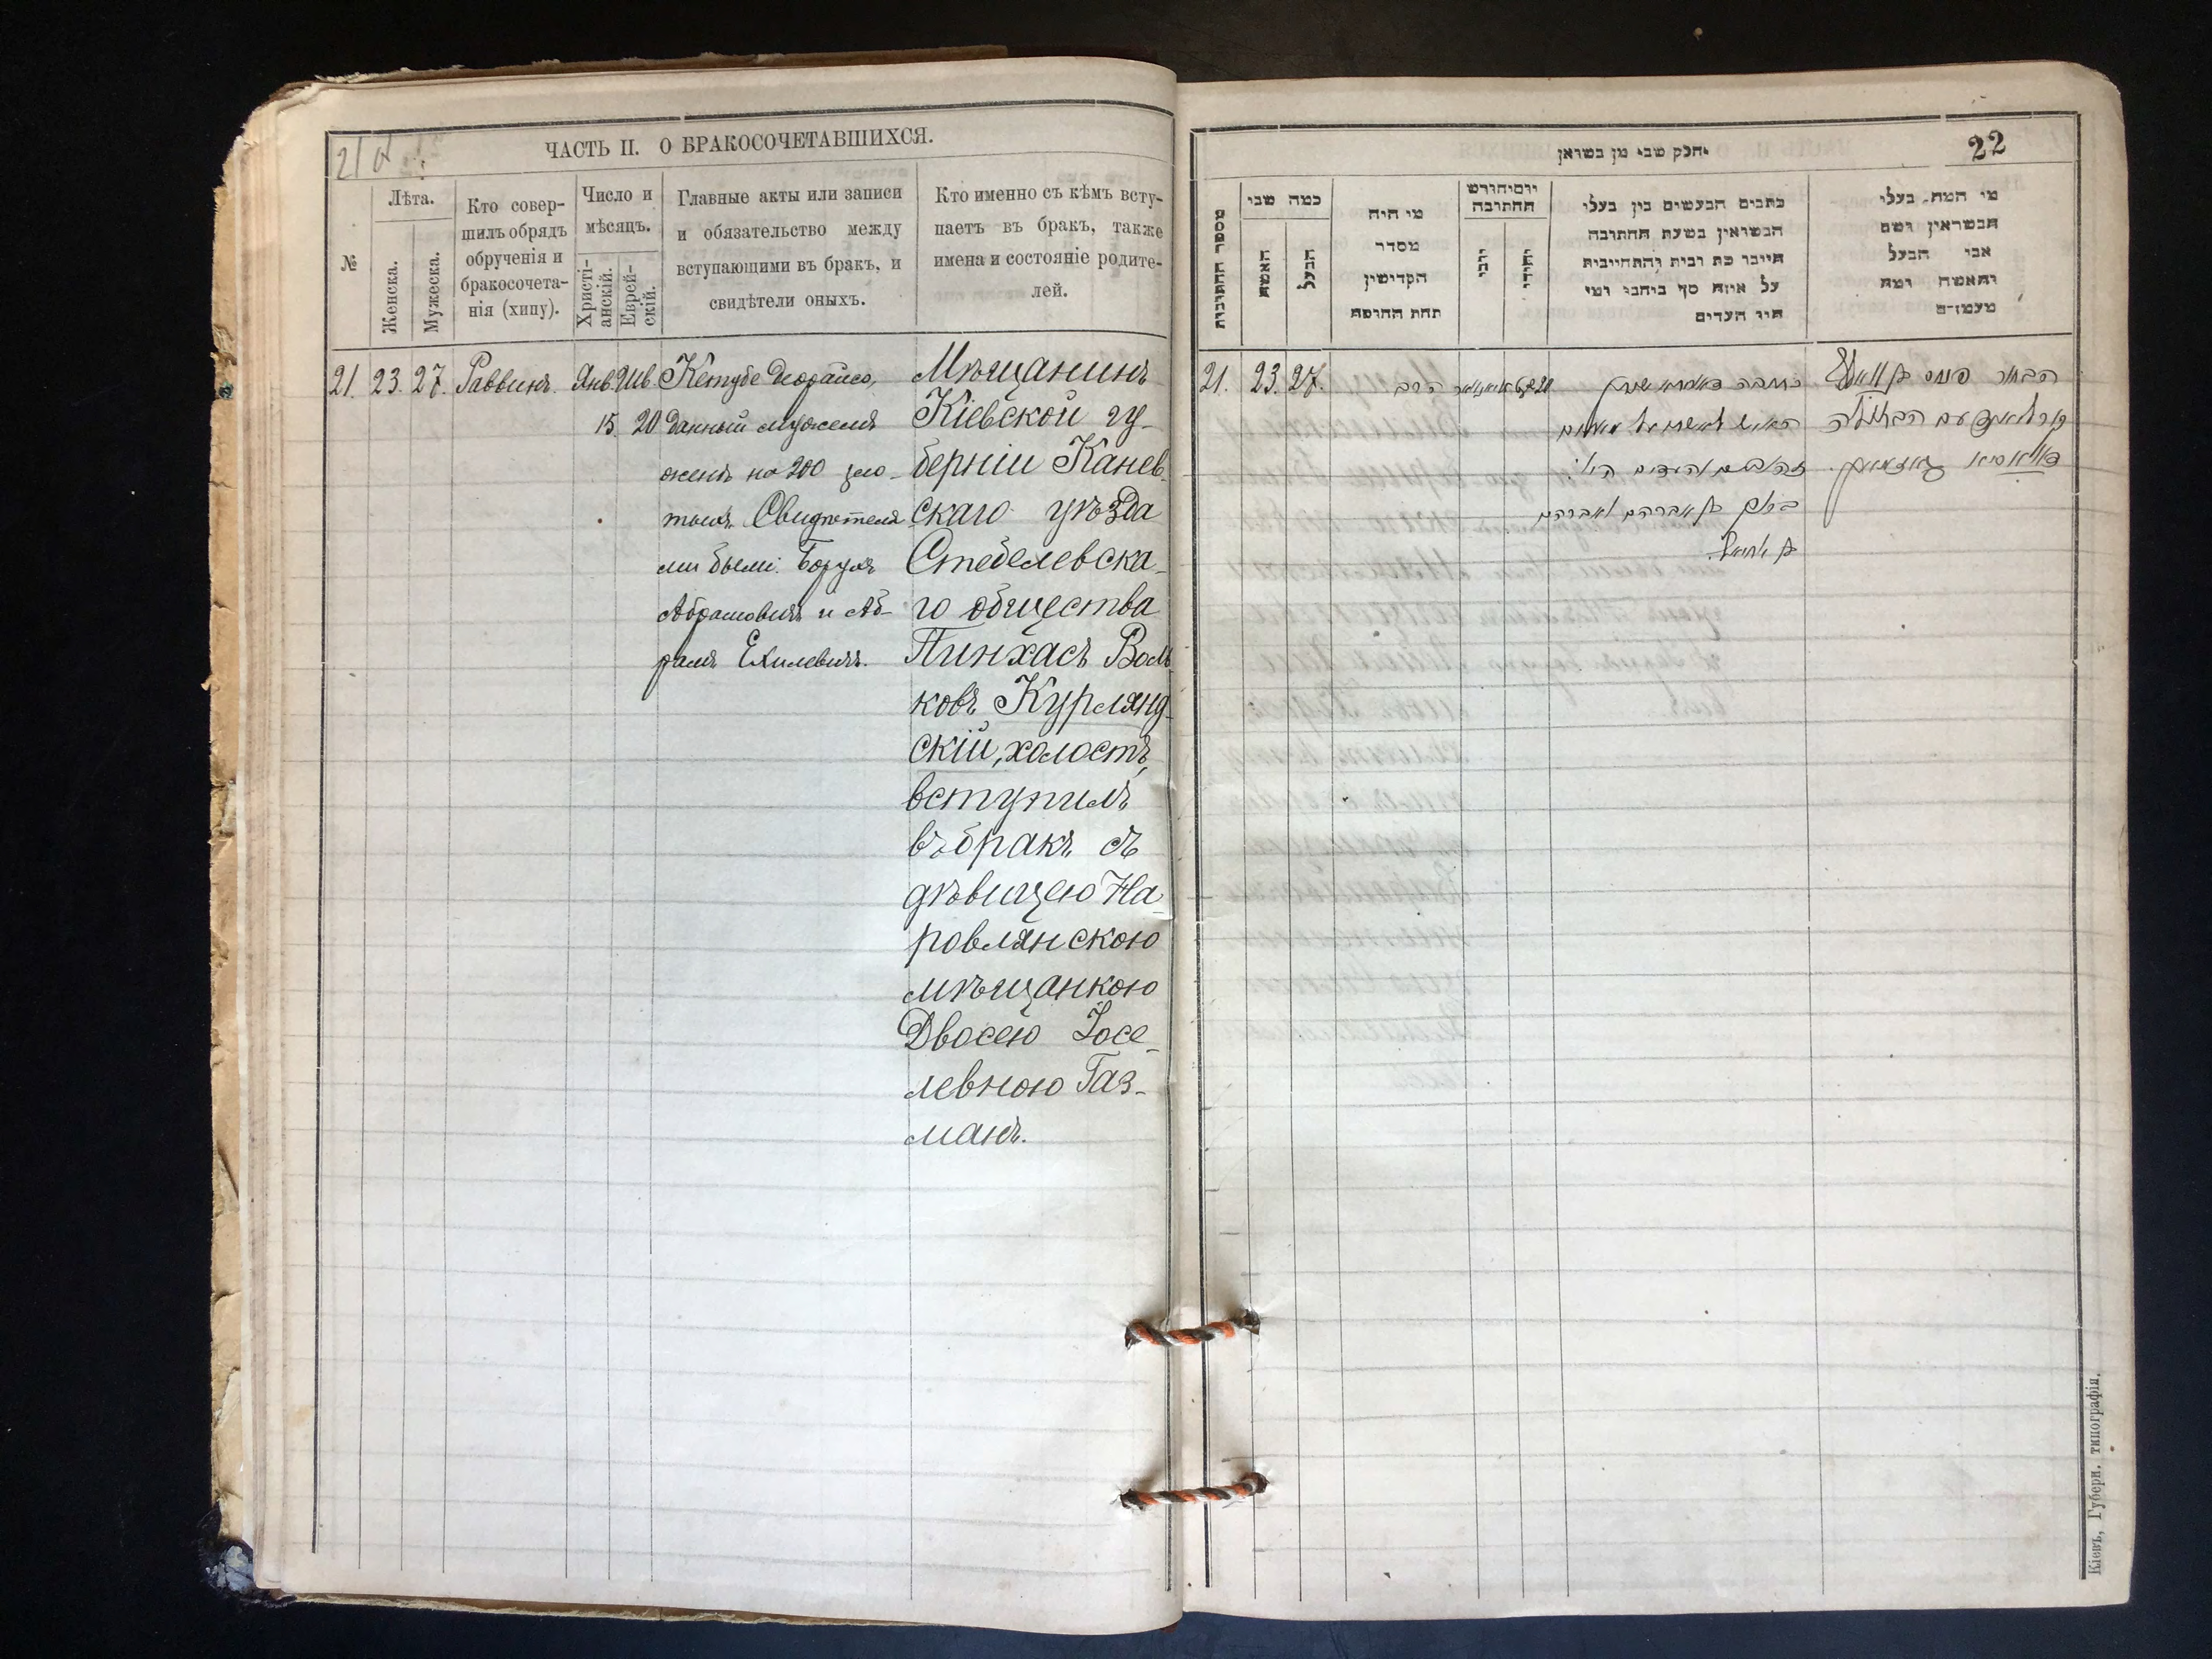 21 об
ЧАСТЬ II. О БРАКОСОЧЕТАВШИХСЯ.
№
Лѣта.
Женска.
Мужеска.
Кто совер-
шилъ обрядъ
обрученія и
бракосочета-
нія (хипу).
Число и
мѣсяцъ.
Христі-
анскій.
Еврей-
скій.
Главные акты или записи
и обязательство между
вступающими въ бракъ, и
свидѣтели оныхъ.
Кто именно съ кѣмъ всту-
паетъ въ бракъ, также
имена и состояніе родите-
лей.
21. 23. 27. Раввинъ. Янв. Шв.
15. 20
Кетубе деорайсо,
данный мужемъ
женѣ на 200 зло-
тыхъ Свидѣтеля-
ми были: Борухъ
Абрамовичъ и Аб-
рамъ Ехилевичъ.
Мѣщанинъ
Кіевской гу-
берніи Канев-
скаго уѣзда
Стеблевска-
го общества
Пинхасъ Воль-
ковъ Курлянд-
скій, холостъ,
вступилъ
въ бракъ съ
дѣвицею На-
ровлянскою
мѣщанкою
Двосею Іосе-
левною Газ-
манъ.
22
וחלק שני מן נשואין
מספר החתונות
כמה שני
האשה
הבעל
מי היה
מסדר
הקדישין
תחת החופה
יום וחודש
החתונה
כתבים הנעשים בין בעלי
הנשואין בשעת החתונה
על איזה סך
היו העדים
מי המה בעלי
הנשואין ושם
אבי הבעל
והאשה ומה
21. 23. 27.
הרב
הבחור פנחס בן
קורלאנד עם הבתולה
והעדים היו:
ברוך בן אברהם ואברהם
בן יחיאל.
Кіевъ, Губерн. типографія.